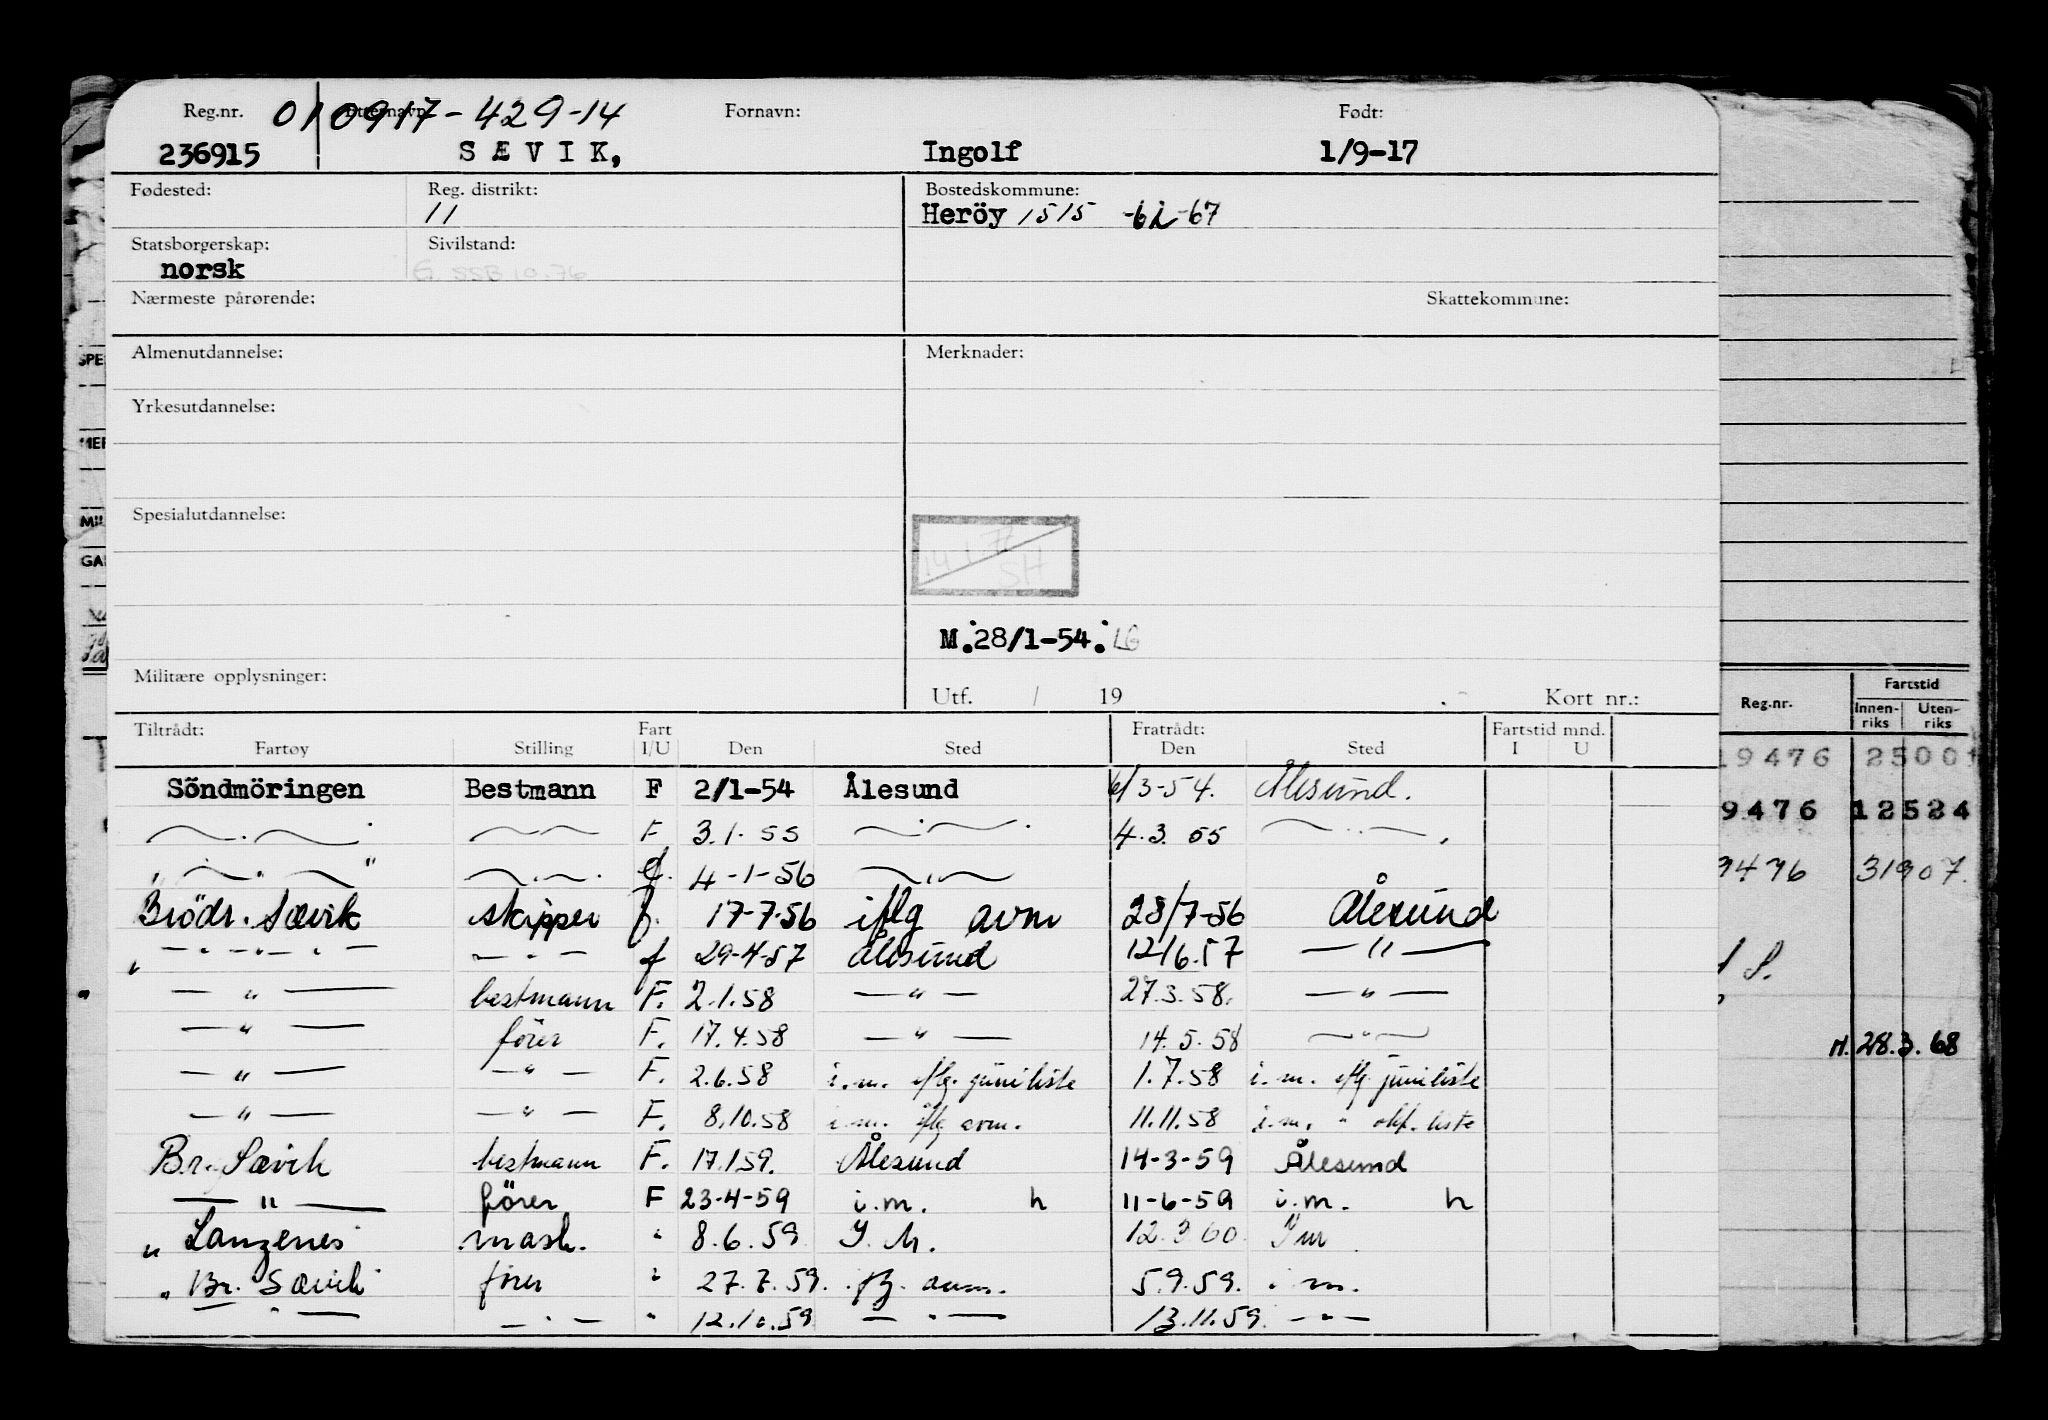 Reg.nr. 010917-429-14 Etternavn: Fornavn: Født:
236915 SÆVIK, Ingolf 1/9-17
Fødested: Reg. distrikt: Bostedskommune:
11 Heröy 1515 -67
Statsborgerskap: Sivilstand:
norsk G. SSB 10.76
Nærmeste pårørende: Skattekommune:
Almenutdannelse: Merknader:
Yrkesutdannelse:
Spesialutdannelse:
M.28/1-54. LG
Militære opplysninger:
Utf. / 19 Kort nr.:
Tiltrådt: Fart Fratrådt: Fartstid mnd.
Fartøy Stilling I/U Den Sted Den Sted I U
Söndmöringen Bestmann F 2/1-54 Ålesund 6/3-54. Ålesund.
F 3.1.55 4.3.55
" " 4-1-56
Brödr. Sævik skipper f. 17-7-56 iflg avm 28/7-56 Ålesund
— " — — " — f 29-4-57 Ålesund 12/6.57 — " —
— " — bestmann F. 2.1.58 — " — 27.3.58. — " —
— " — förer F. 17.4.58 — " — 14.5.58 — " —
— " — — " — F. 2.6.58 i.m. iflg. juniliste 1.7.58 i.m. iflg juniliste
— " — — " — F. 8.10.58 i.m. iflg avm. 11.11.58 i.m. " okt. liste
Br. Sævik bestmann F. 17.1.59. Ålesund 14-3-59 Ålesund
— " — förer F 23-4-59 i.m. h 11-6-59 i.m. h
" mask. " 8.6.59 I.M. 12.3.60
" Br. Sævik förer " 27.7.59. iflg. avm. 5.9.59. i m.
— " — — " — " 12.10.59 — " — 13.11.59. — " —
SPE
MER
MIL
GA
Reg.nr. Fartstid
Innen-riks Uten-riks
19476 25001
9476 12524
9476 31907.
M. 28.3.68